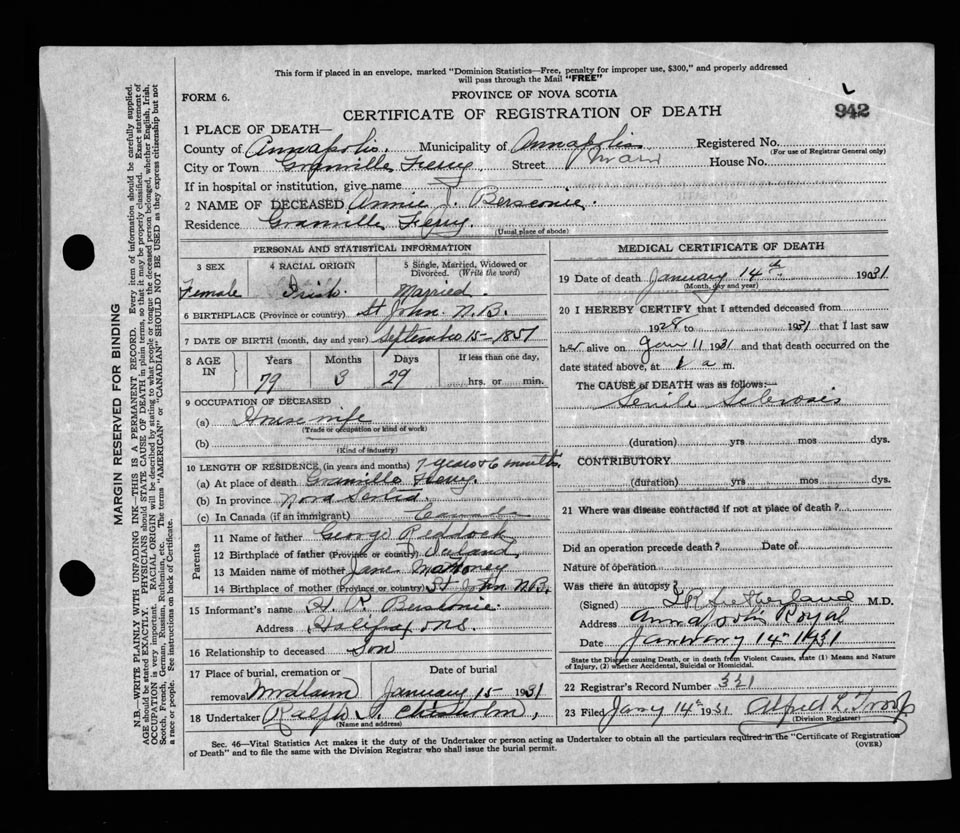 This form if placed in an envelope, marked "Dominion Statistics—Free, penalty for improper use, $300," and properly addressed
will pass through the Mail "FREE"
FORM 6.
PROVINCE OF NOVA SCOTIA
942
CERTIFICATE OF REGISTRATION OF DEATH
1 PLACE OF DEATH—
County of Annapolis. Municipality of Annapolis Registered No.
(For use of Registrar General only)
City or Town Granville Ferry Street House No.
If in hospital or institution, give name
2 NAME OF DECEASED Annie J. Bersconie.
Residence Granville Ferry.
(Usual place of abode)
PERSONAL AND STATISTICAL INFORMATION
3 SEX
4 RACIAL ORIGIN
5 Single, Married, Widowed or
Divorced. (Write the word)
Female Irish Married.
6 BIRTHPLACE (Province or country) St John. N.B.
7 DATE OF BIRTH (month, day and year) September 15- 1851
8 AGE IN
Years Months Days If less than one day,
79 3 29 hrs. or min.
9 OCCUPATION OF DECEASED
(a) House wife
(Trade or occupation or kind of work)
(b)
(Kind of industry)
10 LENGTH OF RESIDENCE, (in years and months) 7 years & 6 months.
(a) At place of death Granville Ferry.
(b) In province Nova Scotia.
(c) In Canada (if an immigrant) Canada
Parents
11 Name of father George Reddock
12 Birthplace of father (Province or country) Ireland,
13 Maiden name of mother Jane Mahoney
14 Birthplace of mother (Province or country) St John N.B.
15 Informant's name H. V. Bersconie.
Address Halifax N.S.
16 Relationship to deceased Son
17 Place of burial, cremation or
Date of burial
removal Woodlawn January 15 1931
18 Undertaker Ralph S. Chisholm,
(Name and address)
MEDICAL CERTIFICATE OF DEATH
19 Date of death January 14th 1931
(Month, day and year)
20 I HEREBY CERTIFY that I attended deceased from
1928 to 1931 that I last saw
her alive on Jan 11 1931 and that death occurred on the
date stated above, at 1 a m.
The CAUSE of DEATH was as follows:—
Senile Sclerosis
(duration) yrs mos dys.
CONTRIBUTORY
(duration) yrs mos dys.
21 Where was disease contracted if not at place of death?
Did an operation precede death? Date of
Nature of operation
Was there an autopsy?
(Signed) M.D.
Address Annapolis Royal
Date January 14th 1931
State the Disease causing Death, or in death from Violent Causes, state (1) Means and Nature
of Injury, (2) whether Accidental, Suicidal or Homicidal.
22 Registrar's Record Number 331
23 Filed Jany 14th 1931 Alfred L. Troop
(Division Registrar)
Sec. 46—Vital Statistics Act makes it the duty of the Undertaker or person acting as Undertaker to obtain all the particulars required in the "Certificate of Registration
of Death" and to file the same with the Division Registrar who shall issue the burial permit.
(OVER)
MARGIN RESERVED FOR BINDING
N.B.—WRITE PLAINLY WITH UNFADING INK—THIS IS A PERMANENT RECORD. Every item of information should be carefully supplied.
AGE should be stated EXACTLY. PHYSICIANS should STATE CAUSE OF DEATH in plain terms, so that it may be properly classified. Exact statement of
OCCUPATION is very important. RACIAL ORIGIN will be described by stating to what people or tongue the deceased person belonged, whether English, Irish,
Scotch, French, German, Russian, Ruthenian, etc. The terms "AMERICAN" or "CANADIAN" SHOULD NOT BE USED as they express citizenship but not
a race or people. See instructions on back of Certificate.